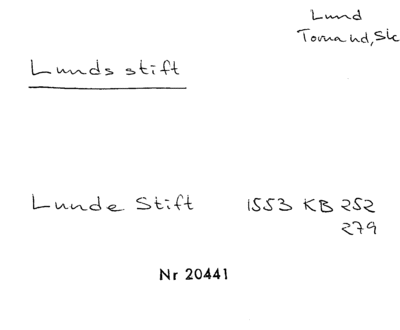 Lund
Torna hd, Sk
Lunds stift
Lunde Stift 1553 KB 252
279
Nr 20441